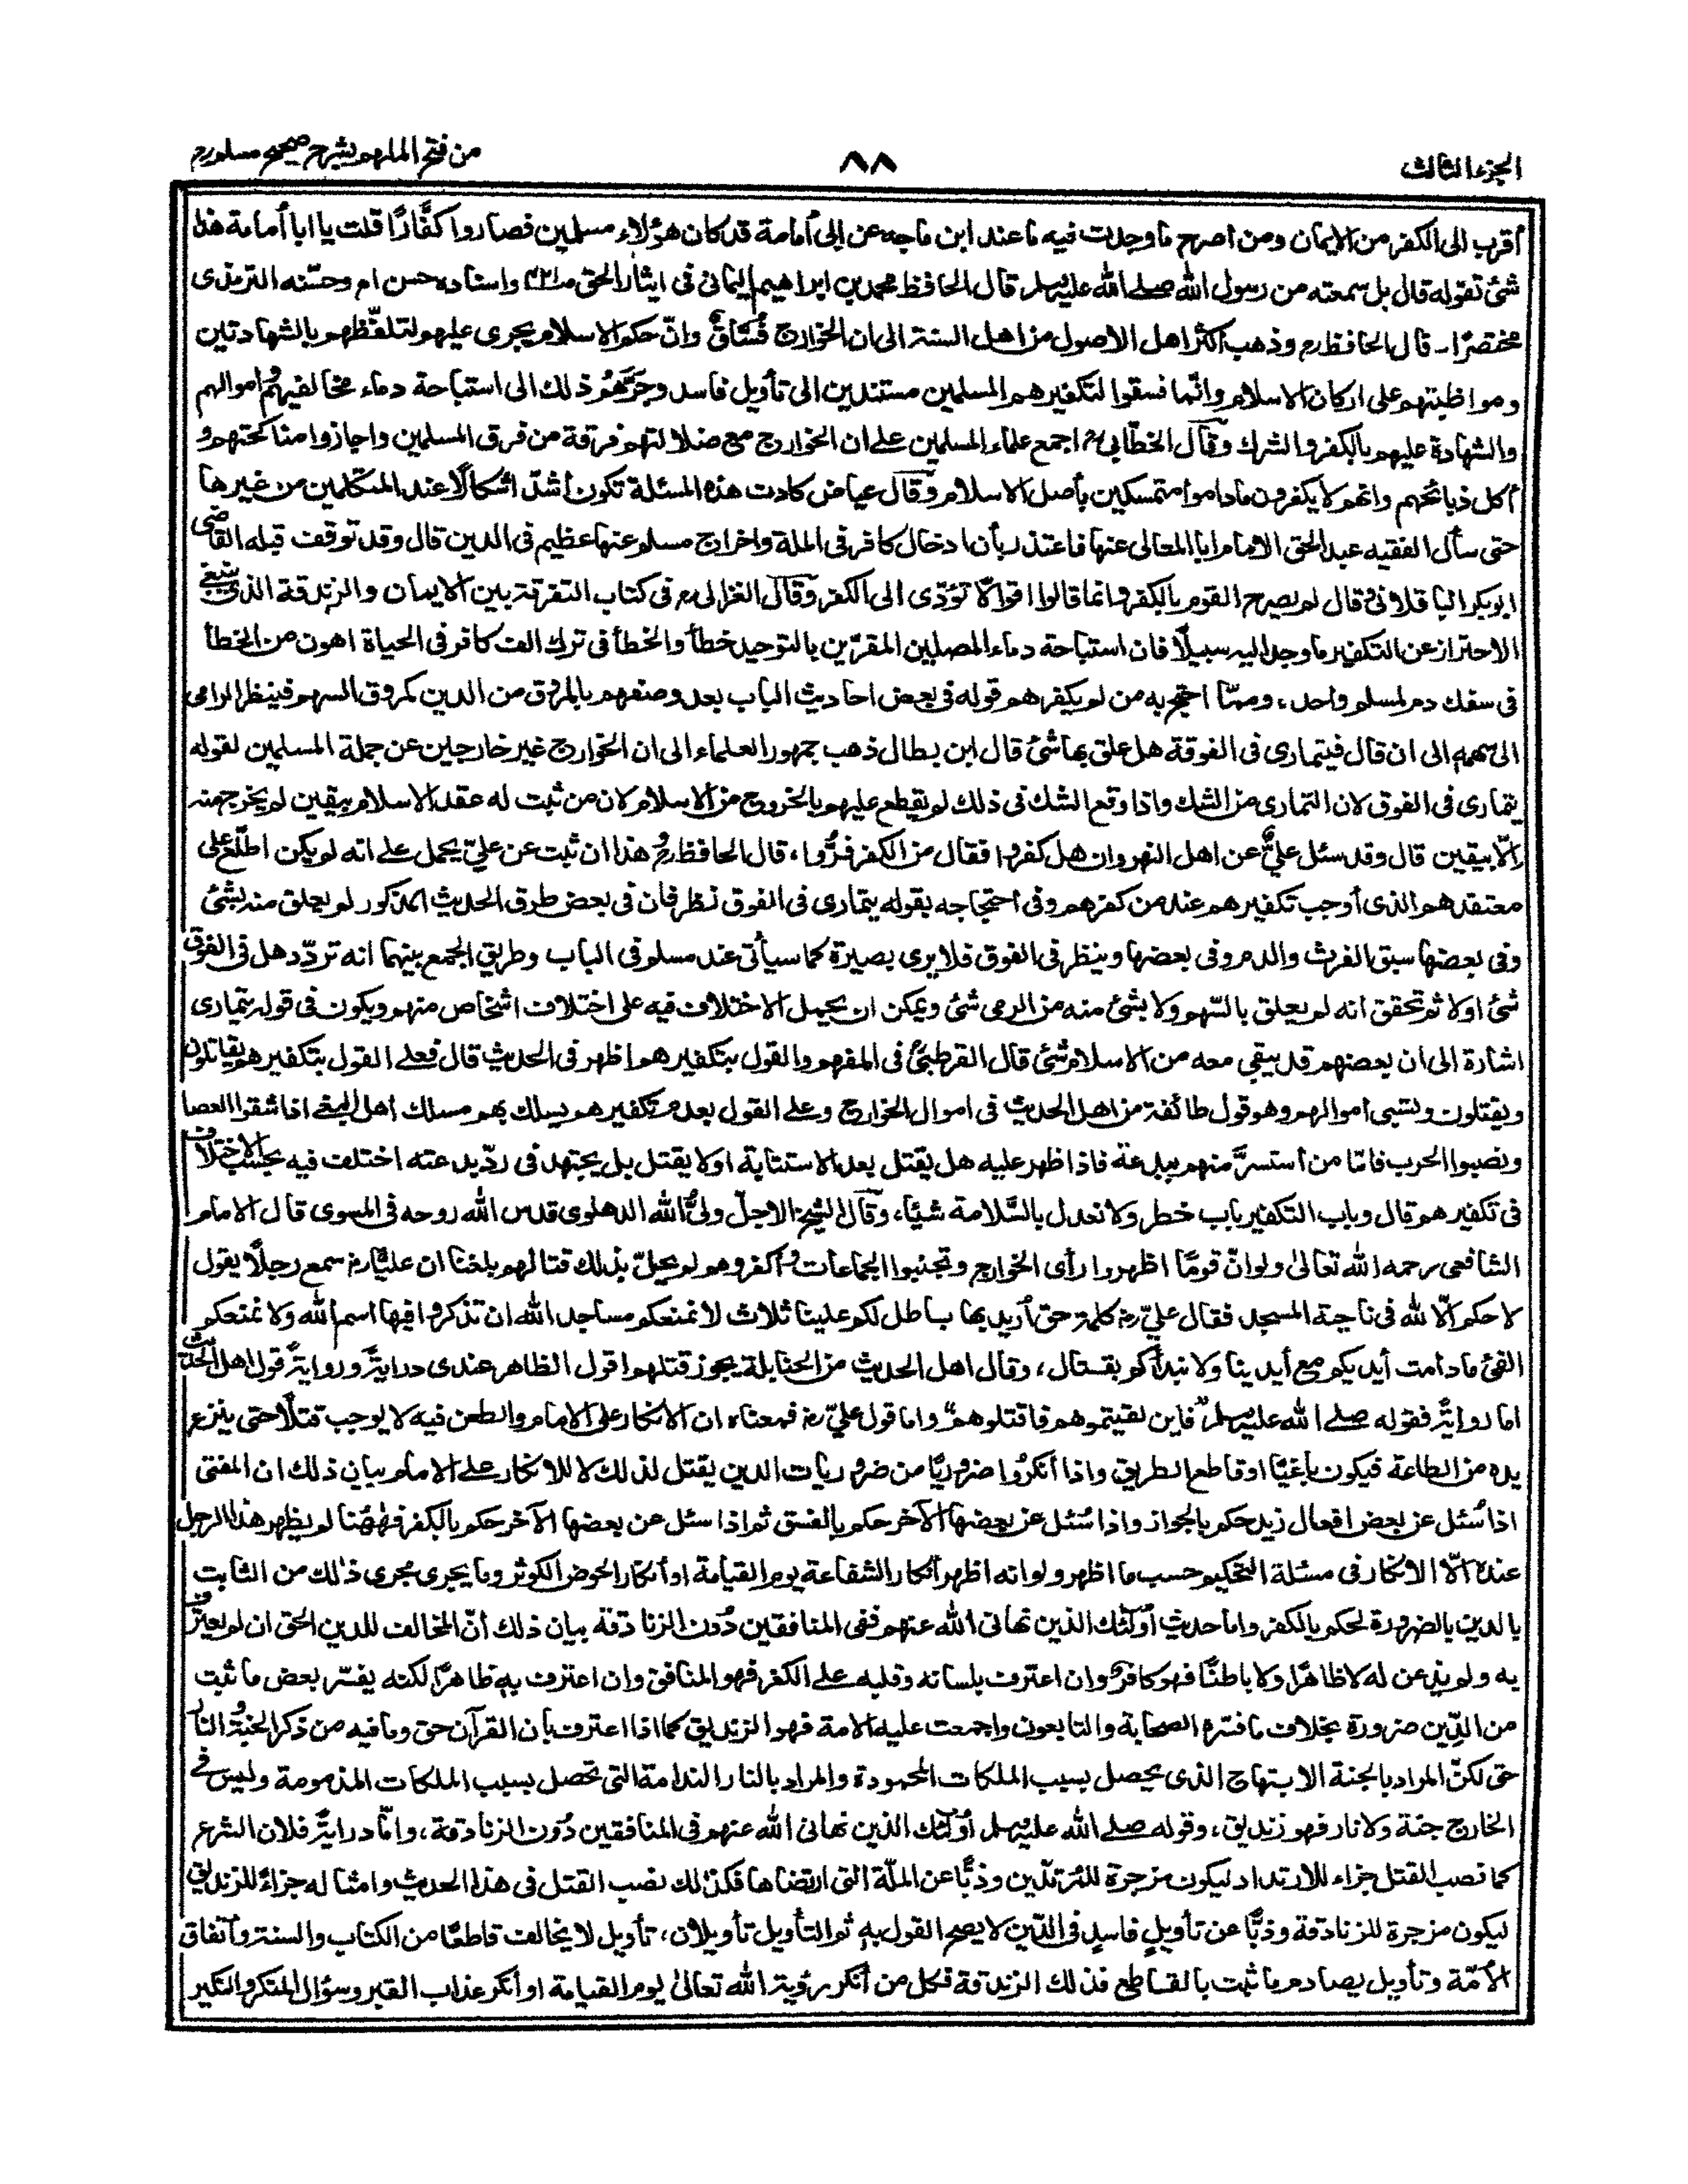 الجزء الثالث
٨٨
من فتح الملهم بشرح صحيح مسلم
أقرب الى الكفر من الايمان ومن اصرح ما وجدت فيه ما عند ابن ماجه عن ابى أمامة قد كان هؤلاء مسلمين فصاروا كفَّارًا قلت يا ابا أمامة هذا
شئ تقوله قال بل سمعته من رسول الله صلے الله عليه وسلم قال الحافظ محمد بن ابراهيم اليمانى فى ايثار الحق واسناده حسن ام وحسّنه الترمذى
مختصرًا۔ قال الحافظ وذهب اكثر اهل الاصول من اهل السنة الى ان الخوارج فُسَّاقٌ وانّ حكم الاسلام يجرى عليهم لتلفّظهم بالشهادتين
ومواظبتهم على اركان الاسلام وانّما فسقوا لتكفيرهم المسلمين مستندين الى تأويل فاسد وجَرَّهُم ذلك الى استباحة دماء مخالفيهم واموالهم
والشهادة عليهم بالكفر والشرك وقال الخطّابى اجمع علماء المسلمين على ان الخوارج مع ضلالتهم فرقة من فرق المسلمين واجازوا مناكحتهم و
أكل ذبائحهم وانهم لا يكفرون ماداموا متمسكين بأصل الاسلام وقال عياض كادت هذه المسئلة تكون أشدّ اشكالًا عند المتكلمين من غيرها
حتى سأل الفقيه عبد الحق الامام ابا المعالى عنها فاعتذر بأن ادخال كافر فى الملة واخراج مسلم عنها عظيم فى الدين قال وقد توقف قبله القاضى
ابوبكر الباقلانى وقال لم يصرح القوم بالكفر وانما قالوا اقوالًا تؤدّى الى الكفر وقال الغزالى فى كتاب التفرقة بين الايمان والزندقة الذى ينبغى
الاحتراز عن التكفير ما وجد اليه سبيلًا فان استباحة دماء المصلين المقرّين بالتوحيد خطأ والخطأ فى ترك الف كافر فى الحياة اهون من الخطأ
فى سفك دم لمسلم واحد، وممّا احتج به من لم يكفرهم قوله فى بعض احاديث الباب بعد وصفهم بالمروق من الدين كمروق السهم فينظر الرامى
الى سهمه الى ان قال فيتمارى فى الفوقة هل علق بها شئ قال ابن بطال ذهب جمهور العلماء الى ان الخوارج غير خارجين عن جملة المسلمين لقوله
يتمارى فى الفوق لان التمارى من الشك واذا وقع الشك فى ذلك لم يقطع عليهم بالخروج من الاسلام لان من ثبت له عقد الاسلام بيقين لم يخرج منه
الّا بيقين قال وقد سئل علىّ عن اهل النهروان هل كفروا فقال من الكفر فرُّوا، قال الحافظ وهذا ان ثبت عن علىّ يحمل على انه لم يكن اطّلع على
معتقدهم الذى أوجب تكفيرهم عند من كفرهم وفى احتجاجه بقوله يتمارى فى الفوق نظر فان فى بعض طرق الحديث المذكور لم يعلق منه بشئ
وفى بعضها سبق الفرث والدم وفى بعضها وينظر فى الفوق فلا يرى بصيرة كما سيأتى عند مسلم فى الباب وطريق الجمع بينهما انه تردّد هل فى الفوق
شئ اولا ثم تحقق انه لم يعلق بالسّهم ولا بشئ منه من الرمى شئ ويمكن ان يحمل الاختلاف فيه على اختلاف اشخاص منهم ويكون فى قوله يتمارى
اشارة الى ان بعضهم قد يبقى معه من الاسلام شئ قال القرطبىّ فى المفهم والقول بتكفيرهم اظهر فى الحديث قال فعلى القول بتكفيرهم يقاتلون
ويقتلون وتسبى أموالهم وهو قول طائفة من اهل الحديث فى اموال الخوارج وعلى القول بعدم تكفيرهم يسلك بهم مسلك اهل البغى اذا شقوا العصا
ونصبوا الحرب فامّا من أستسرَّ منهم ببدعة فاذا ظهر عليه هل يقتل بعد الاستتابة او لا يقتل بل يجتهد فى ردّ بدعته اختلف فيه بحسب الاختلاف
فى تكفيرهم قال وباب التكفير باب خطر ولا نعدل بالسَّلامة شيئا، وقال الشيخ الاجلّ ولىُّ الله الدهلوى قدس الله روحه فى المسوى قال الامام
الشافعى رحمه الله تعالىٰ ولو انّ قومًا اظهروا رأى الخوارج وتجنبوا الجماعات وأكفروهم لم يحلّ بذلك قتالهم بلغنا ان عليًّا سمع رجلًا يقول
لا حكم الّا لله فى ناحية المسجد فقال علىّ كلمة حق أريد بها باطل لكم علينا ثلاث لا نمنعكم مساجد الله ان تذكروا فيها اسم الله ولا نمنعكم
الفئ ما دامت أيديكم مع أيدينا ولا نبدأكم بقتال، وقال اهل الحديث من الحنابلة يجوز قتلهم اقول الظاهر عندى درايةً وروايةً قول اهل الحديث
اما روايةً فقوله صلے الله عليه وسلم "فاين لقيتموهم فاقتلوهم" واما قول علىّ فمعناه ان الانكار على الامام والطعن فيه لا يوجب قتلًا حتى ينزع
يده من الطاعة فيكون باغيًا او قاطع الطريق واذا أنكروا ضروريًّا من ضروريات الدين يقتل لذلك لا للانكار على الامام بيان ذلك ان المفتى
اذا سُئل عن بعض افعال زيد حكم بالجواز واذا سُئل عن بعضها الآخر حكم بالفسق ثم اذا سئل عن بعضها الآخر حكم بالكفر فهٰهُنا لم يظهر هذا الرجل
عنده الّا الانكار فى مسئلة التحكيم حسب ما اظهر ولو انه اظهر أنكار الشفاعة يوم القيامة او أنكار الحوض الكوثر وما يجرى مجرى ذلك من الثابت
بالدين بالضرورة لحكم بالكفر واما حديث أولئك الذين نهانى الله عنهم ففى المنافقين دُون الزنادقة بيان ذلك أنّ المخالف للدين الحق ان لم يعترف
به ولم يذعن له لا ظاهرًا ولا باطنًا فهو كافر وان اعترف بلسانه وقلبه على الكفر فهو المنافق وان اعترف به ظاهرًا لكنه يفسّر بعض ما ثبت
من الدّين ضرورة بخلاف ما فسّره الصحابة والتابعون واجمعت عليه الامة فهو الزنديق كما اذا اعترف بان القرآن حق وما فيه من ذكر الجنة والنار
حق لكنّ المراد بالجنة الابتهاج الذى يحصل بسبب الملكات المحمودة والمراد بالنار الندامة التى تحصل بسبب الملكات المذمومة وليس فى
الخارج جنة ولا نار فهو زنديق، وقوله صلے الله عليه وسلم أولئك الذين نهانى الله عنهم فى المنافقين دُون الزنادقة، وامّا درايةً فلان الشرع
كما نصب القتل جزاء للارتداد ليكون مزجرة للمُرتدّين وذبًّا عن الملّة التى ارتضاها فكذلك نصب القتل فى هذا الحديث وامثاله جزاءً للزنديق
ليكون مزجرة للزنادقة وذبًّا عن تأويلٍ فاسدٍ فى الدّين لا يصح القول به ثم التأويل تأويلان، تأويل لا يخالف قاطعًا من الكتاب والسنة وأتفاق
الأمّة وتأويل يصادم ما ثبت بالقاطع فذلك الزندقة فكل من أنكر رؤية الله تعالىٰ يوم القيامة او أنكر عذاب القبر وسؤال المنكر والنكير